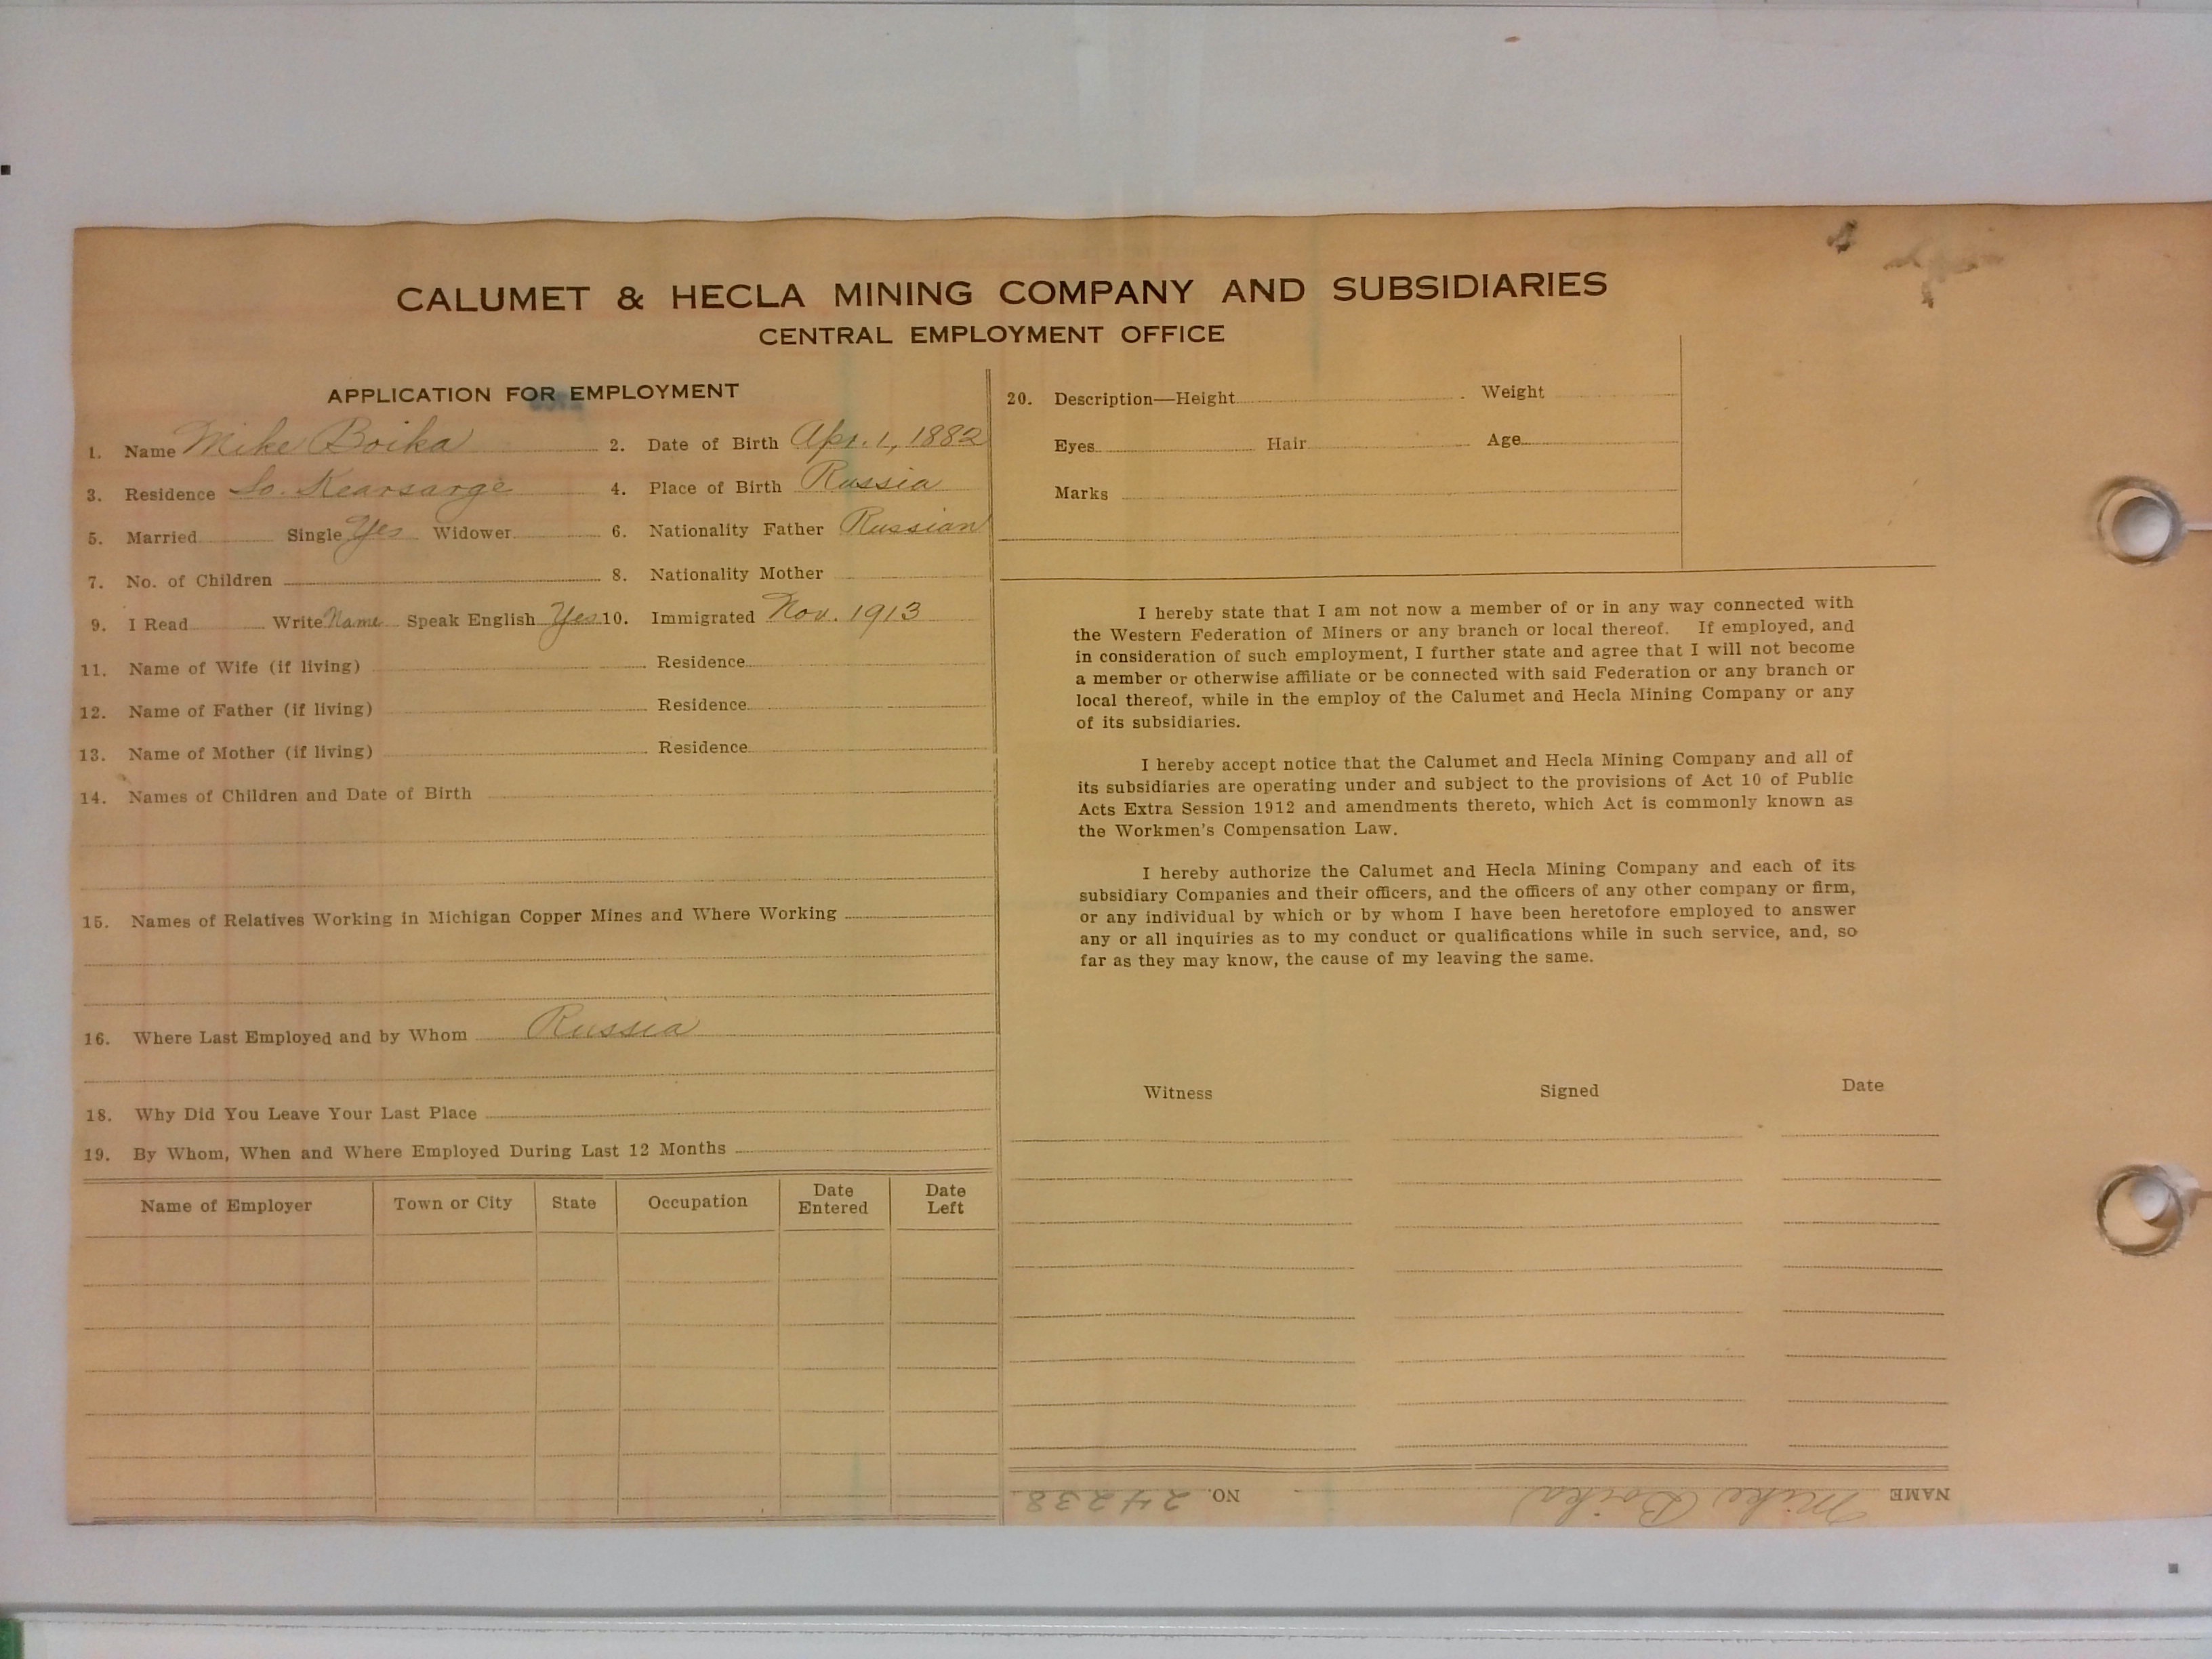 CALUMET & HECLA MINING COMPANY AND SUBSIDIARIES
CENTRAL EMPLOYMENT OFFICE
APPLICATION FOR EMPLOYMENT
1. Name Mike Boika 2. Date of Birth Apr. 1, 1882
3. Residence So. Kearsarge 4. Place of Birth Russia
5. Married Single Yes Widower 6. Nationality Father Russian
7. No. of Children 8. Nationality Mother
9. I Read Write Name Speak English Yes 10. Immigrated Nov. 1913
11. Name of Wife (if living) Residence
12. Name of Father (if living) Residence
13. Name of Mother (if living) Residence
14. Names of Children and Date of Birth
15. Names of Relatives Working in Michigan Copper Mines and Where Working
16. Where Last Employed and by Whom Russia
18. Why Did You Leave Your Last Place
19. By Whom, When and Where Employed During Last 12 Months
Name of Employer Town or City State Occupation Date Entered Date Left
20. Description—Height Weight
Eyes Hair Age
Marks
I hereby state that I am not now a member of or in any way connected with
the Western Federation of Miners or any branch or local thereof. If employed, and
in consideration of such employment, I further state and agree that I will not become
a member or otherwise affiliate or be connected with said Federation or any branch or
local thereof, while in the employ of the Calumet and Hecla Mining Company or any
of its subsidiaries.
I hereby accept notice that the Calumet and Hecla Mining Company and all of
its subsidiaries are operating under and subject to the provisions of Act 10 of Public
Acts Extra Session 1912 and amendments thereto, which Act is commonly known as
the Workmen's Compensation Law.
I hereby authorize the Calumet and Hecla Mining Company and each of its
subsidiary Companies and their officers, and the officers of any other company or firm,
or any individual by which or by whom I have been heretofore employed to answer
any or all inquiries as to my conduct or qualifications while in such service, and, so
far as they may know, the cause of my leaving the same.
Witness Signed Date
NAME Mike Boika NO. 24238